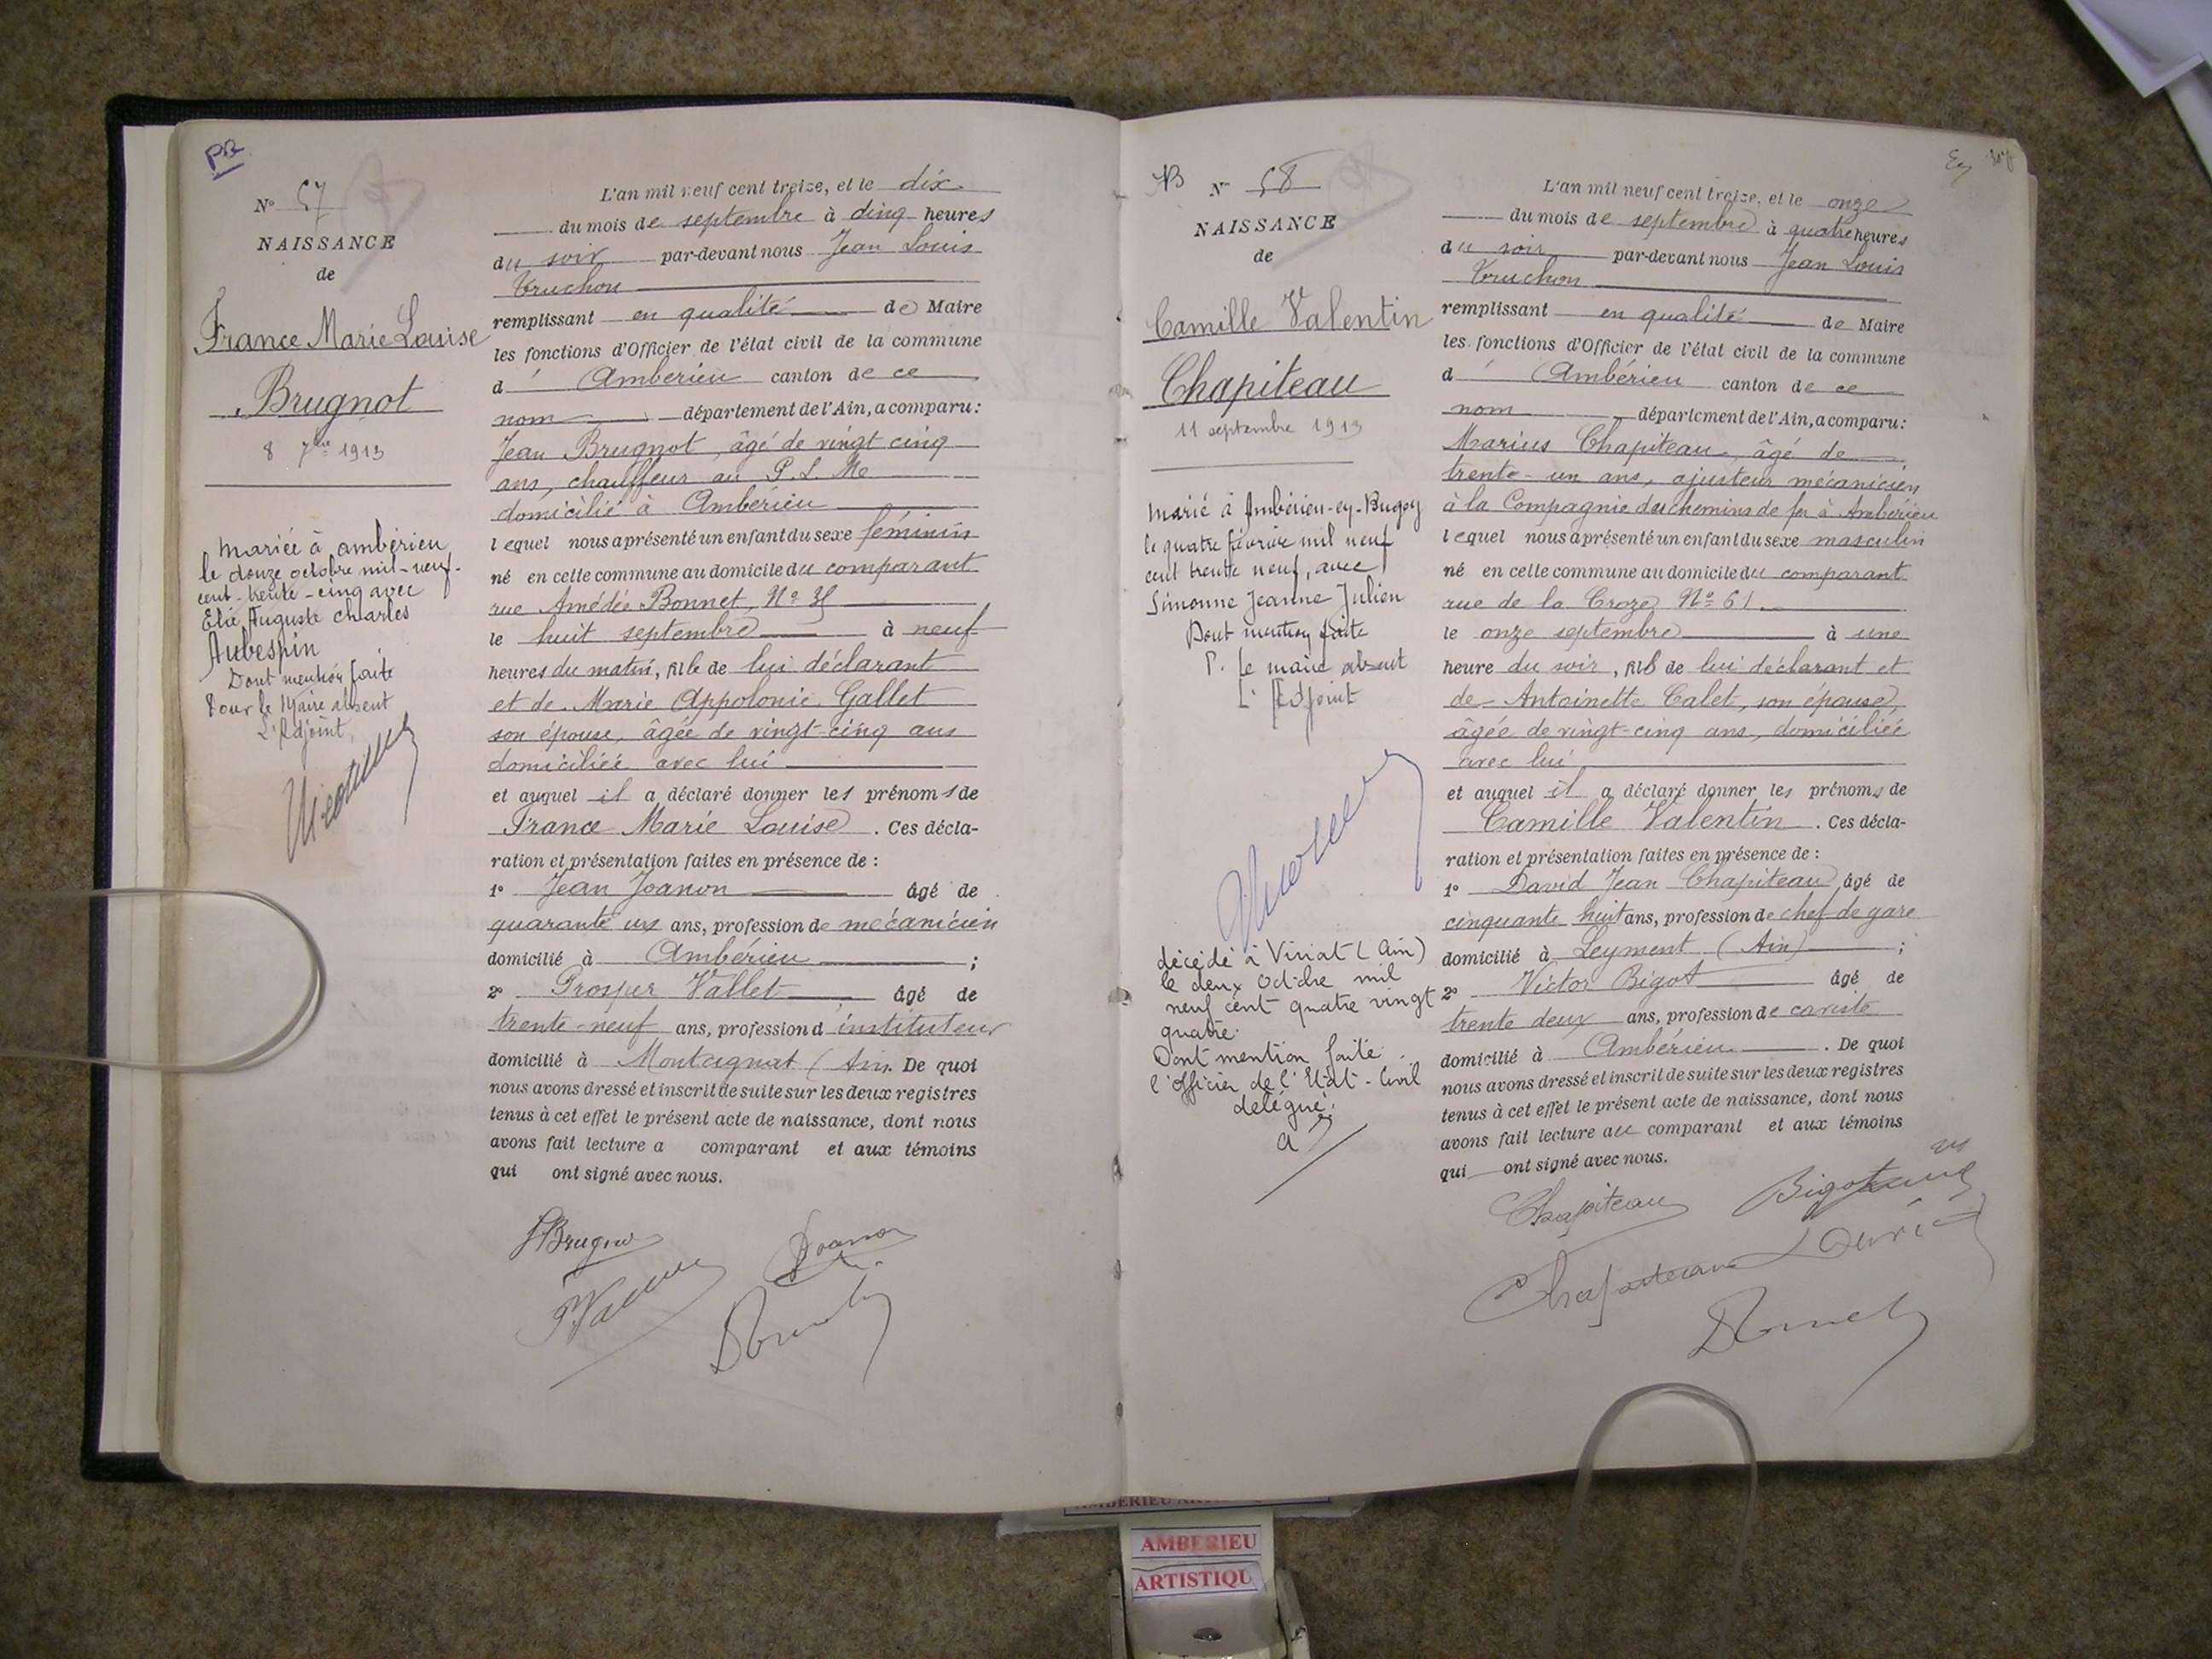 PB
N° 57
NAISSANCE
de
France Marie Louise
Brugnot
8 7bre 1913
mariée à ambérieu
le douze octobre mil-neuf-
cent-trente-cinq avec
Elie Auguste Charles
Aubespin
Dont mention faite
Pour le Maire absent
L'Adjoint
L'an mil neuf cent treize, et le dix
du mois de septembre à cinq heures
du soir par-devant nous Jean Louis
Truchon
remplissant en qualité de Maire
les fonctions d'Officier de l'état civil de la commune
d' Ambérieu canton de ce
nom département de l'Ain, a comparu:
Jean Brugnot, âgé de vingt cinq
ans, chauffeur au P. L. M.
domicilié à Ambérieu
lequel nous a présenté un enfant du sexe féminin
né en cette commune au domicile du comparant
rue Amédée Bonnet, N°
le huit septembre à neuf
heures du matin, fille de lui déclarant
et de Marie Appolonie Gallet
son épouse, âgée de vingt-cinq ans
domiciliée avec lui
et auquel il a déclaré donner les prénoms de
France Marie Louise. Ces décla-
ration et présentation faites en présence de :
1° Jean Joanon âgé de
quarante ans, profession de mécanicien
domicilié à Ambérieu ;
2° Prosper Vallet âgé de
trente-neuf ans, profession d'instituteur
domicilié à Montagnat (Ain. De quoi
nous avons dressé et inscrit de suite sur les deux registres
tenus à cet effet le présent acte de naissance, dont nous
avons fait lecture a comparant et aux témoins
qui ont signé avec nous.
JBrugno
Joanon
N° 58
NAISSANCE
de
Camille Valentin
Chapiteau
11 septembre 1913
marié à Ambérieu-en-Bugey
le quatre février mil neuf
cent trente neuf, avec
Simonne Jeanne Julien
Dont mention faite
P. le maire absent
L'Adjoint
décédé à Viriat (Ain)
le deux Octobre mil
neuf cent quatre vingt
quatre.
Dont mention faite.
l'officier de l'Etat-Civil
délégué.
L'an mil neuf cent treize, et le onze
du mois de septembre à quatre heures
du soir par-devant nous Jean Louis
Truchon
remplissant en qualité de Maire
les fonctions d'Officier de l'état civil de la commune
d' Ambérieu canton de ce
nom département de l'Ain, a comparu:
Marius Chapiteau, âgé de
trente-un ans, ajusteur mécanicien
à la Compagnie des chemins de fer à Ambérieu
lequel nous a présenté un enfant du sexe masculin
né en cette commune au domicile du comparant
rue de la Croze N° 61
le onze septembre à une
heure du soir, fils de lui déclarant et
de Antoinette Calet, son épouse,
âgée de vingt-cinq ans, domiciliée
avec lui
et auquel il a déclaré donner les prénoms de
Camille Valentin. Ces décla-
ration et présentation faites en présence de :
1° David Jean Chapiteau, âgé de
cinquante huit ans, profession de chef de gare
domicilié à Leyment (Ain) ;
2° Victor Bigot âgé de
trente deux ans, profession de cariste
domicilié à Ambérieu. De quoi
nous avons dressé et inscrit de suite sur les deux registres
tenus à cet effet le présent acte de naissance, dont nous
avons fait lecture au comparant et aux témoins
qui ont signé avec nous.
Chapiteau
Chapiteau David
AMBERIEU
ARTISTIQU